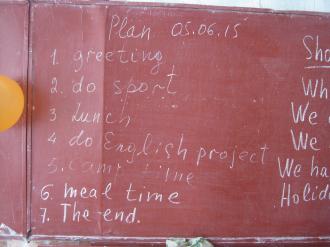 Plan 05.06.15
1. greeting
2. do sport
3 Lunch
4 do English project
5. camp time
6. meal time
7. The end.
Sho
Wh
We
We
We ha
Holid